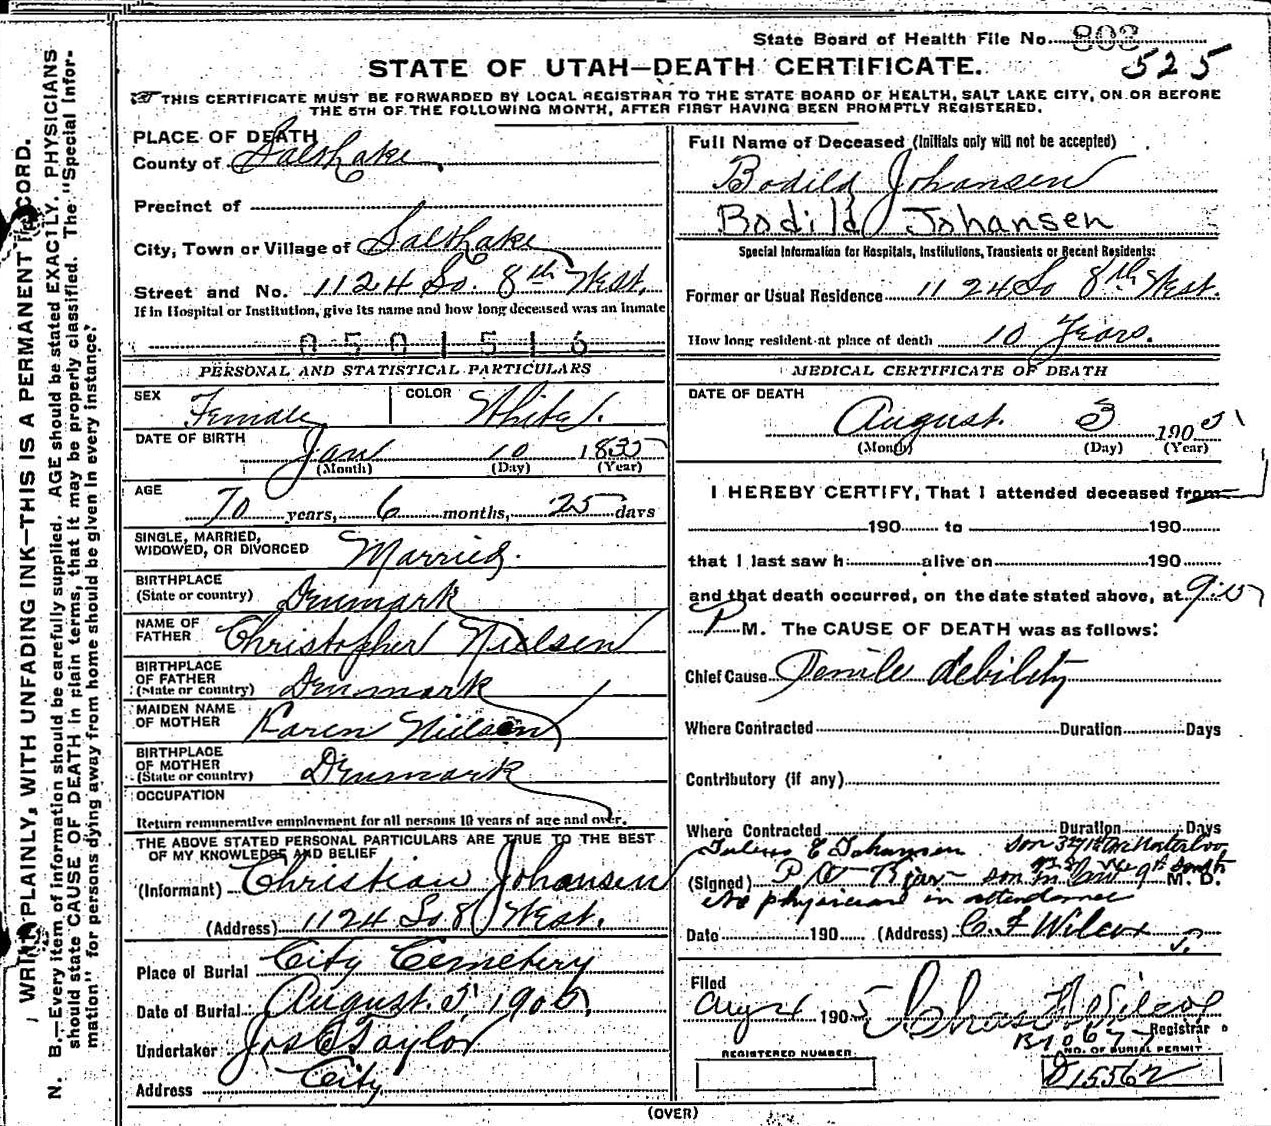 State Board of Health File No. 803
525
STATE OF UTAH—DEATH CERTIFICATE.
THIS CERTIFICATE MUST BE FORWARDED BY LOCAL REGISTRAR TO THE STATE BOARD OF HEALTH, SALT LAKE CITY, ON OR BEFORE
THE 5TH OF THE FOLLOWING MONTH, AFTER FIRST HAVING BEEN PROMPTLY REGISTERED.
WRITE PLAINLY, WITH UNFADING INK—THIS IS A PERMANENT RECORD.
N. B.—Every item of information should be carefully supplied. AGE should be stated EXACTLY. PHYSICIANS
should state CAUSE OF DEATH in plain terms, that it may be properly classified. The "Special Infor-
mation" for persons dying away from home should be given in every instance.
PLACE OF DEATH
County of Salt Lake
Precinct of
City, Town or Village of Salt Lake
Street and No. 1124 So. 8th West.
If in Hospital or Institution, give its name and how long deceased was an inmate
0501516
PERSONAL AND STATISTICAL PARTICULARS
SEX Female COLOR White
DATE OF BIRTH Jan 10 1835
(Month) (Day) (Year)
AGE
70 years, 6 months, 25 days
SINGLE, MARRIED,
WIDOWED, OR DIVORCED Married.
BIRTHPLACE
(State or country) Denmark
NAME OF
FATHER Christopher Nielsen
BIRTHPLACE
OF FATHER
(State or country) Denmark
MAIDEN NAME
OF MOTHER Karen Nielsen
BIRTHPLACE
OF MOTHER
(State or country) Denmark
OCCUPATION
Return remunerative employment for all persons 10 years of age and over.
THE ABOVE STATED PERSONAL PARTICULARS ARE TRUE TO THE BEST
OF MY KNOWLEDGE AND BELIEF
(Informant) Christian Johansen
(Address) 1124 So 8 West.
Place of Burial City Cemetery
Date of Burial August 5, 1905
Undertaker Jos E Taylor
Address City
Full Name of Deceased (Initials only will not be accepted)
Bodild Johansen
Bodild Johansen
Special Information for Hospitals, Institutions, Transients or Recent Residents:
Former or Usual Residence 1124 So 8th West.
How long resident at place of death 10 Years.
MEDICAL CERTIFICATE OF DEATH
DATE OF DEATH
August 3 1905
(Month) (Day) (Year)
I HEREBY CERTIFY, That I attended deceased from
190 to 190
that I last saw h alive on 190
and that death occurred, on the date stated above, at 9:10
P M. The CAUSE OF DEATH was as follows:
Chief Cause Senile debility
Where Contracted Duration Days
Contributory (if any)
Where Contracted Duration Days
Johansen son Waterloo
(Signed) son in law 9th South M. D.
No physician in attendance
Date 190 (Address) C. F Wilcox
Filed
Aug 4 1905 Chas F Wilcox
Registrar
B10677
REGISTERED NUMBER NO. OF BURIAL PERMIT
D15562
(OVER)